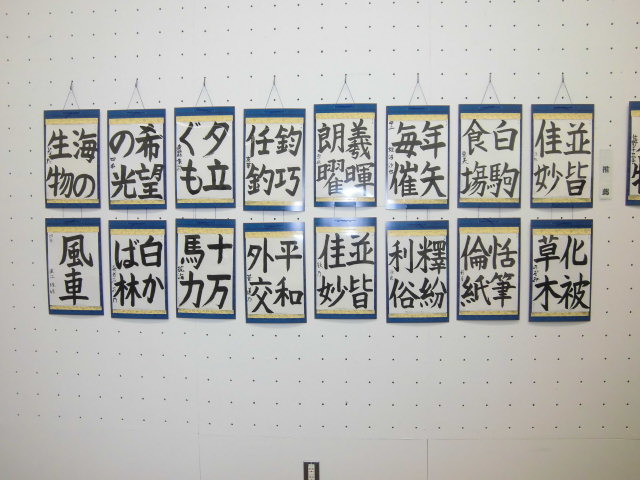 推薦
並皆
佳妙
白駒
食場
年矢
毎催
羲暉
朗曜
鈞巧
任釣
夕立
ぐも
希望
の光
海の
生物
化被
草木
恬筆
倫紙
釋紛
利俗
並皆
佳妙
平和
外交
十万
馬力
白か
ば林
風車